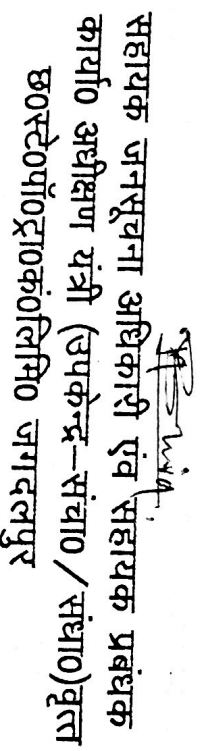 सहायक जनसूचना अधिकारी एवं सहायक प्रबंधक
कार्या0 अधीक्षण यंत्री (उपकेन्द्र–संचा0/संधा0)वृत्त
छ0स्टे0पॉ0ट्रा0कं0लिमि0 जगदलपुर